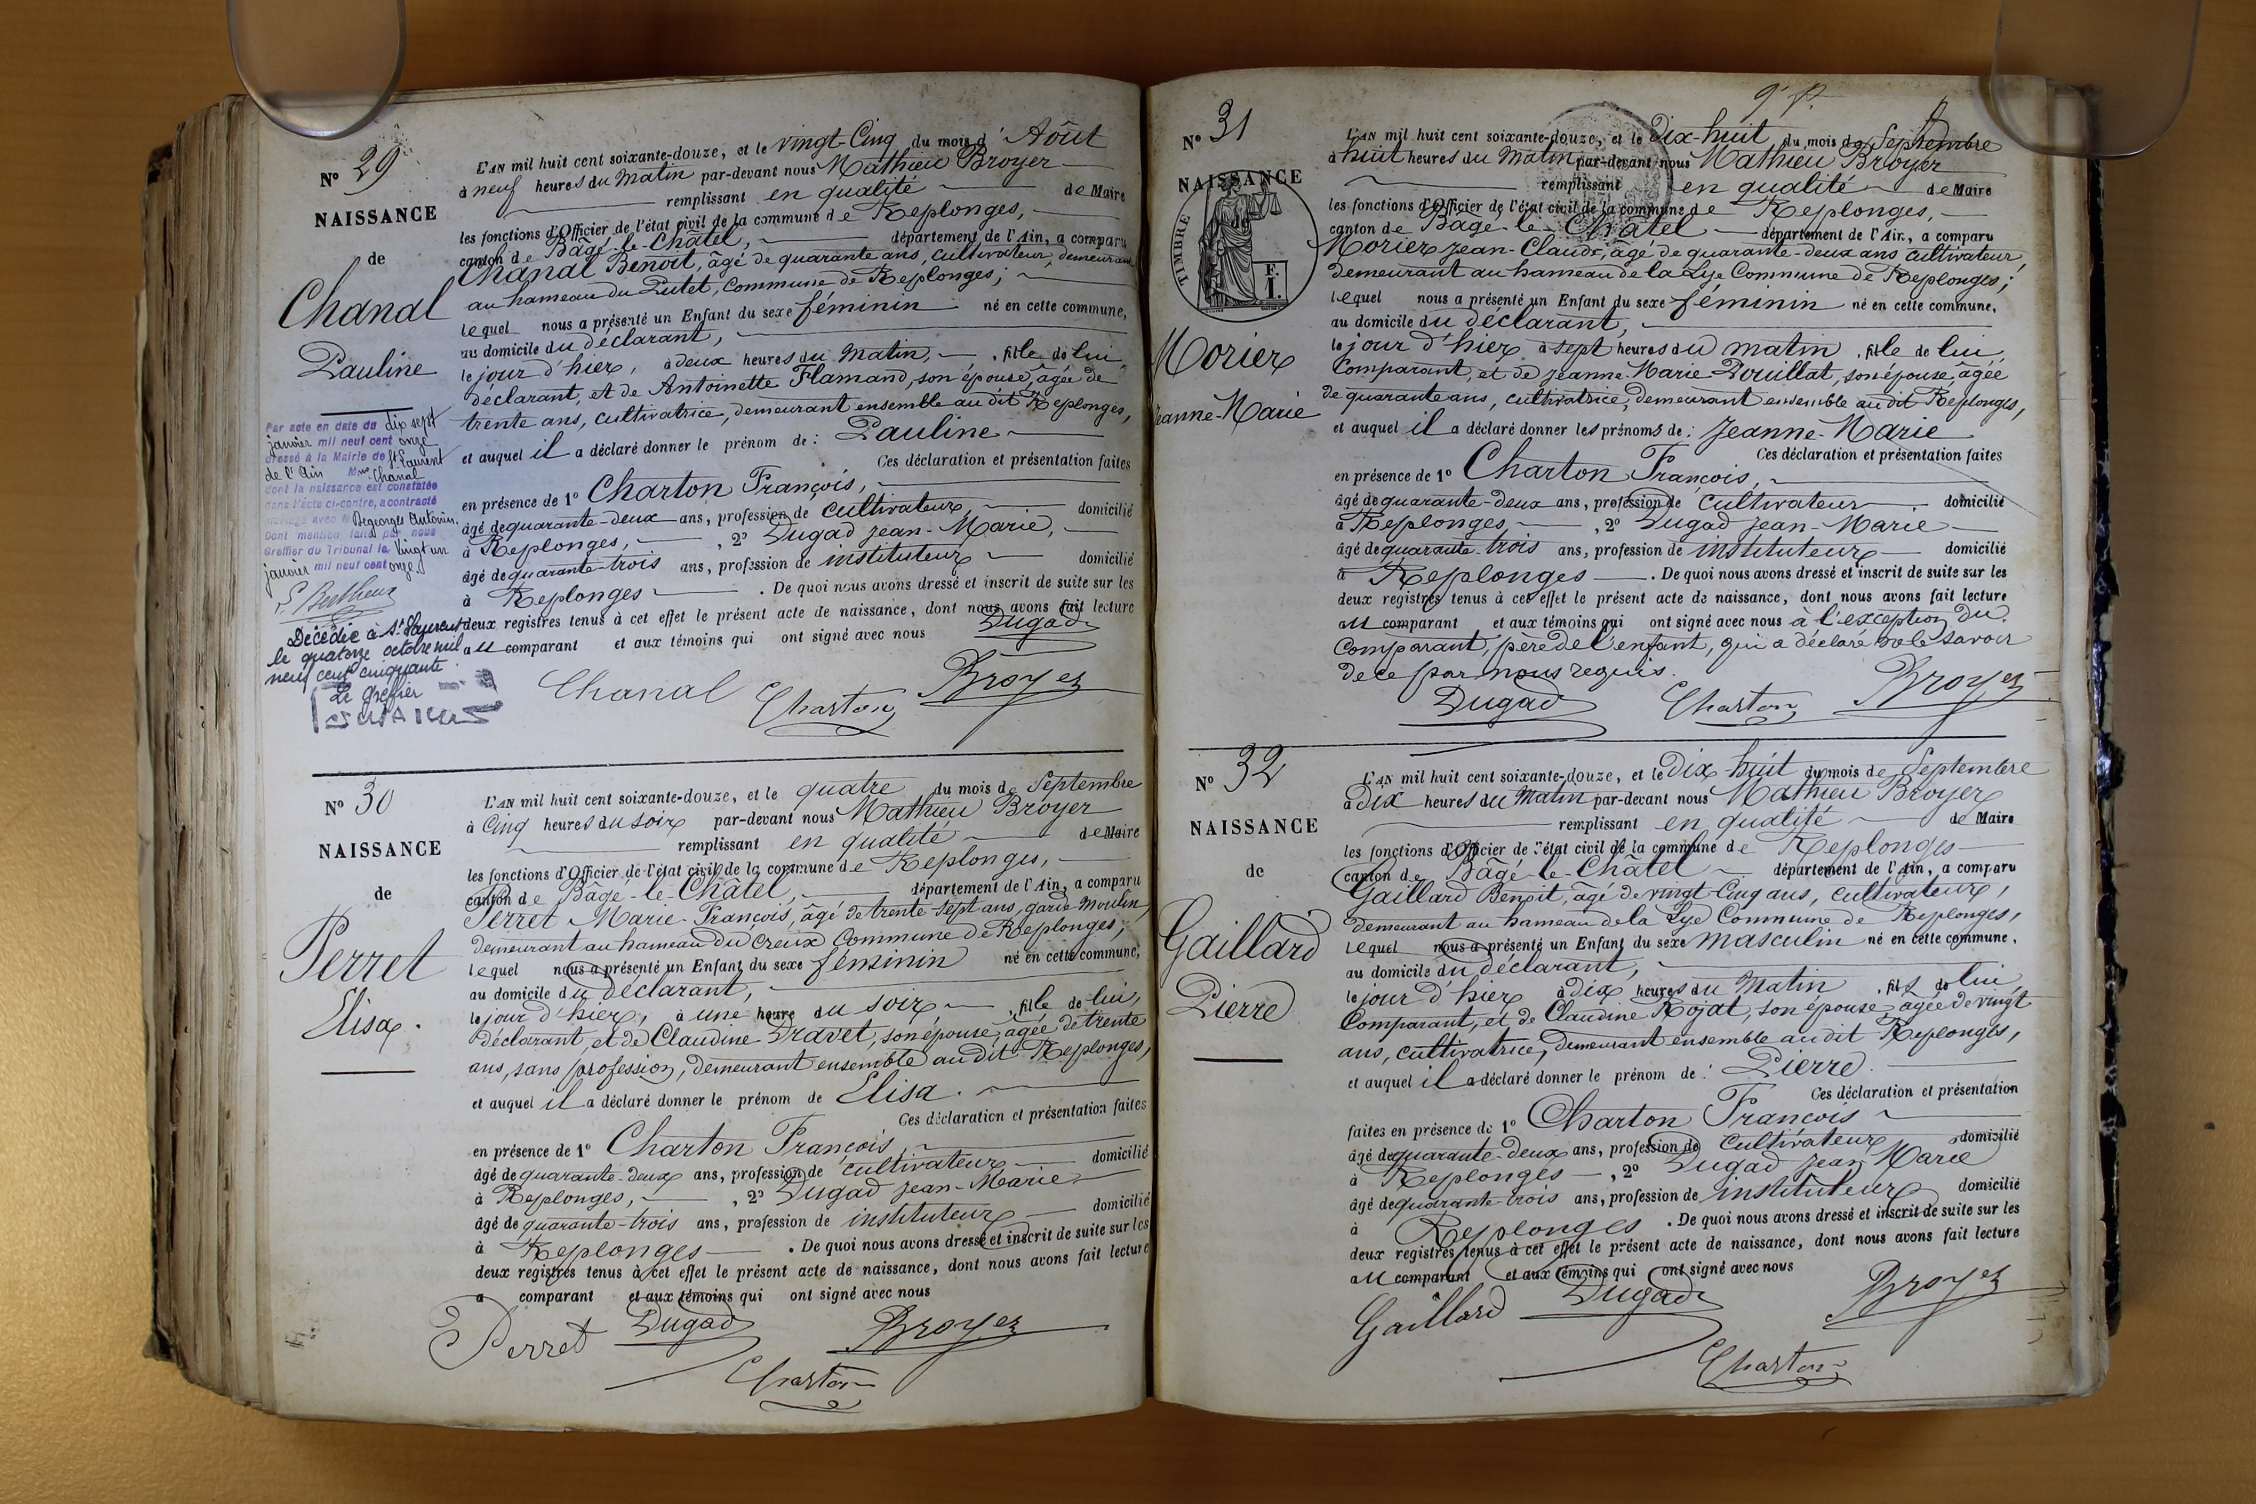 N° 29
NAISSANCE
de
Chanal
Pauline
Par acte en date du dix sept
janvier mil neuf cent onze
dressé à la Mairie de St Laurent
de l'Ain Mme Chanal
dont la naissance est constatée
dans l'acte ci-contre, a contracté
mariage avec M Degeorges Antonin.
Dont mention faite par nous
Greffier du Tribunal le vingt un
janvier mil neuf cent onze.
Décédée à St Laurent
le quatorze octobre mil
neuf cent cinquante.
Le Greffier
L'AN mil huit cent soixante-douze, et le vingt Cinq du mois d'Août
à neuf heures du Matin par-devant nous Mathieu Broyer
remplissant en qualité de Maire
les fonctions d'Officier de l'état civil de la commune de Replonges,
canton de Bâgé-le-Châtel, département de l'Ain, a comparu
Chanal Benoit, âgé de quarante ans, cultivateur, demeurant
au hameau du Putet, Commune de Replonges;
lequel nous a présenté un Enfant du sexe féminin né en cette commune,
au domicile du déclarant,
le jour d'hier, à deux heures du Matin, fille de lui
déclarant, et de Antoinette Flamand, son épouse, âgée de
trente ans, cultivatrice, demeurant ensemble au dit Replonges,
et auquel il a déclaré donner le prénom de: Pauline
Ces déclaration et présentation faites
en présence de 1° Charton François,
âgé de quarante-deux ans, profession de cultivateur domicilié
à Replonges, , 2° Dugad Jean-Marie,
âgé de quarante-trois ans, profession de instituteur domicilié
à Replonges . De quoi nous avons dressé et inscrit de suite sur les
deux registres tenus à cet effet le présent acte de naissance, dont nous avons fait lecture
au comparant et aux témoins qui ont signé avec nous
Dugad
Chanal Charton Broyer
N° 30
NAISSANCE
de
Perret
Elisa.
L'AN mil huit cent soixante-douze, et le quatre du mois de Septembre
à Cinq heures du soir par-devant nous Mathieu Broyer
remplissant en qualité de Maire
les fonctions d'Officier de l'état civil de la commune de Replonges,
canton de Bâgé-le-Châtel, département de l'Ain, a comparu
Perret Marie-François, âgé de trente-sept ans, garde-moulin,
demeurant au hameau du Creux Commune de Replonges;
lequel nous a présenté un Enfant du sexe féminin né en cette commune,
au domicile du déclarant,
le jour d'hier, à une heure du soir fille de lui,
déclarant, et de Claudine Dravet, son épouse, âgée de trente
ans, sans profession, demeurant ensemble au dit Replonges,
et auquel il a déclaré donner le prénom de Elisa.
Ces déclaration et présentation faites
en présence de 1° Charton François,
âgé de quarante-deux ans, profession de cultivateur domicilié
à Replonges, , 2° Dugad Jean-Marie
âgé de quarante-trois ans, profession de instituteur domicilié
à Replonges . De quoi nous avons dressé et inscrit de suite sur les
deux registres tenus à cet effet le présent acte de naissance, dont nous avons fait lecture
a comparant et aux témoins qui ont signé avec nous
Perret Dugad Broyer
Charton
N° 31
NAISSANCE
TIMBRE
F.
I.
Morier
Jeanne-Marie
L'AN mil huit cent soixante-douze, et le Dix-huit du mois de Septembre
à huit heures du Matin par-devant nous Mathieu Broyer
remplissant en qualité de Maire
les fonctions d'Officier de l'état civil de la commune de Replonges,
canton de Bâgé-le-Châtel département de l'Ain, a comparu
Morier Jean-Claude, âgé de quarante-deux ans cultivateur,
demeurant au hameau de la Lye Commune de Replonges;
lequel nous a présenté un Enfant du sexe féminin né en cette commune,
au domicile du déclarant,
le jour d'hier à sept heures du matin, fille de lui,
Comparant, et de Jeanne-Marie Pouillat, son épouse, âgée
de quarante ans, cultivatrice, demeurant ensemble au dit Replonges,
et auquel il a déclaré donner les prénoms de: Jeanne-Marie
Ces déclaration et présentation faites
en présence de 1° Charton François,
âgé de quarante-deux ans, profession de cultivateur domicilié
à Replonges, , 2° Dugad Jean-Marie
âgé de quarante-trois ans, profession de instituteur domicilié
à Replonges . De quoi nous avons dressé et inscrit de suite sur les
deux registres tenus à cet effet le présent acte de naissance, dont nous avons fait lecture
au comparant et aux témoins qui ont signé avec nous à l'exception du
Comparant, père de l'enfant, qui a déclaré ne le savoir
de ce par nous requis.
Dugad Charton Broyer
N° 32
NAISSANCE
de
Gaillard
Pierre
L'AN mil huit cent soixante-douze, et le Dix huit du mois de Septembre
à Dix heures du Matin par-devant nous Mathieu Broyer
remplissant en qualité de Maire
les fonctions d'Officier de l'état civil de la commune de Replonges
canton de Bâgé-le-Châtel département de l'Ain, a comparu
Gaillard Benoit, âgé de vingt-Cinq ans, cultivateur,
demeurant au hameau de la Lye Commune de Replonges,
lequel nous a présenté un Enfant du sexe masculin né en cette commune,
au domicile du déclarant,
le jour d'hier à dix heures du Matin, fils de lui,
Comparant, et de Claudine Rojat, son épouse, âgée de vingt
ans, cultivatrice, demeurant ensemble au dit Replonges,
et auquel il a déclaré donner le prénom de: Pierre.
Ces déclaration et présentation
faites en présence de 1° Charton François
âgé de quarante-deux ans, profession de Cultivateur domicilié
à Replonges , 2° Dugad Jean Marie
âgé de quarante-trois ans, profession de instituteur domicilié
à Replonges . De quoi nous avons dressé et inscrit de suite sur les
deux registres tenus à cet effet le présent acte de naissance, dont nous avons fait lecture
au comparant et aux témoins qui ont signé avec nous
Gaillard Dugad Broyer
Charton